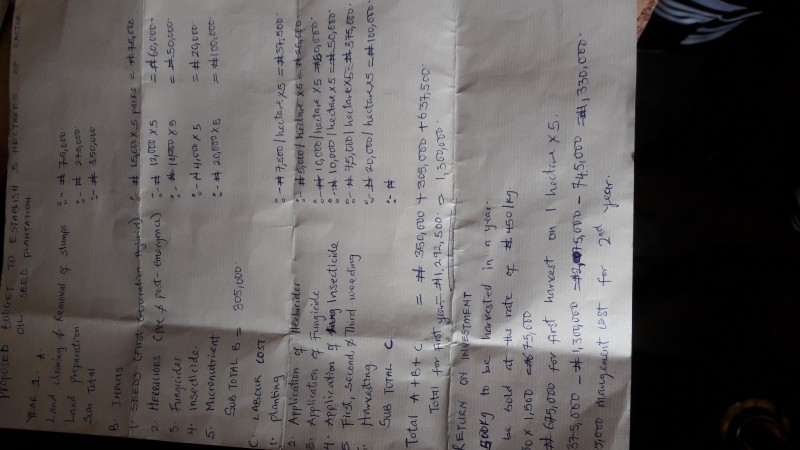 PROPOSED BUDGET TO ESTABLISH 5 HECTARES OF CASTOR
OIL SEED PLANTATION
YEAR 1. A
Land clearing & Removal of stumps :- ₦ 75,000
Land preparation :- ₦ 275,000
Sub Total :- ₦ 350,000
B. INPUTS
1. SEEDS (First Generation Hybrid) :- ₦ 15,000 x 5 packs = ₦ 75,000
2. HERBICIDES (pre & post-emergence) :- ₦ 12,000 x 5 = ₦ 60,000
3. Fungicides :- ₦ 10,000 x 5 = ₦ 50,000
4. Insecticide :- ₦ 4,000 x 5 = ₦ 20,000
5. Micronutrient :- ₦ 20,000 x 5 = ₦ 100,000
SUB TOTAL B = 305,000
C. LABOUR COST
1. Planting :- ₦ 7,500 / hectare x 5 = ₦ 37,500
2. Application of Herbicides :- ₦ 5,000 / hectare x 5 = ₦ 25,000
3. Application of Fungicide :- ₦ 10,000 / hectare x 5 = ₦ 50,000
4. Application of Insecticide :- ₦ 10,000 / hectare x 5 = ₦ 50,000
5. First, Second, & Third weeding :- ₦ 75,000 / hectare x 5 = ₦ 375,000
Harvesting :- ₦ 20,000 / hectare x 5 = ₦ 100,000
SUB TOTAL C :- ₦
Total A+B+C = ₦ 350,000 + 305,000 + 637,500
Total for first year = ₦ 1,292,500 = 1,300,000
RETURN ON INVESTMENT
to be harvested in a year
be sold at the rate of ₦ 450/kg
0 x 1,500 = ₦ 675,000
₦ 675,000 for first harvest on 1 hectare x 5.
375,000 - ₦ 1,300,000 = - 745,000 = ₦ 1,330,000
5,000 management cost for 2nd year.